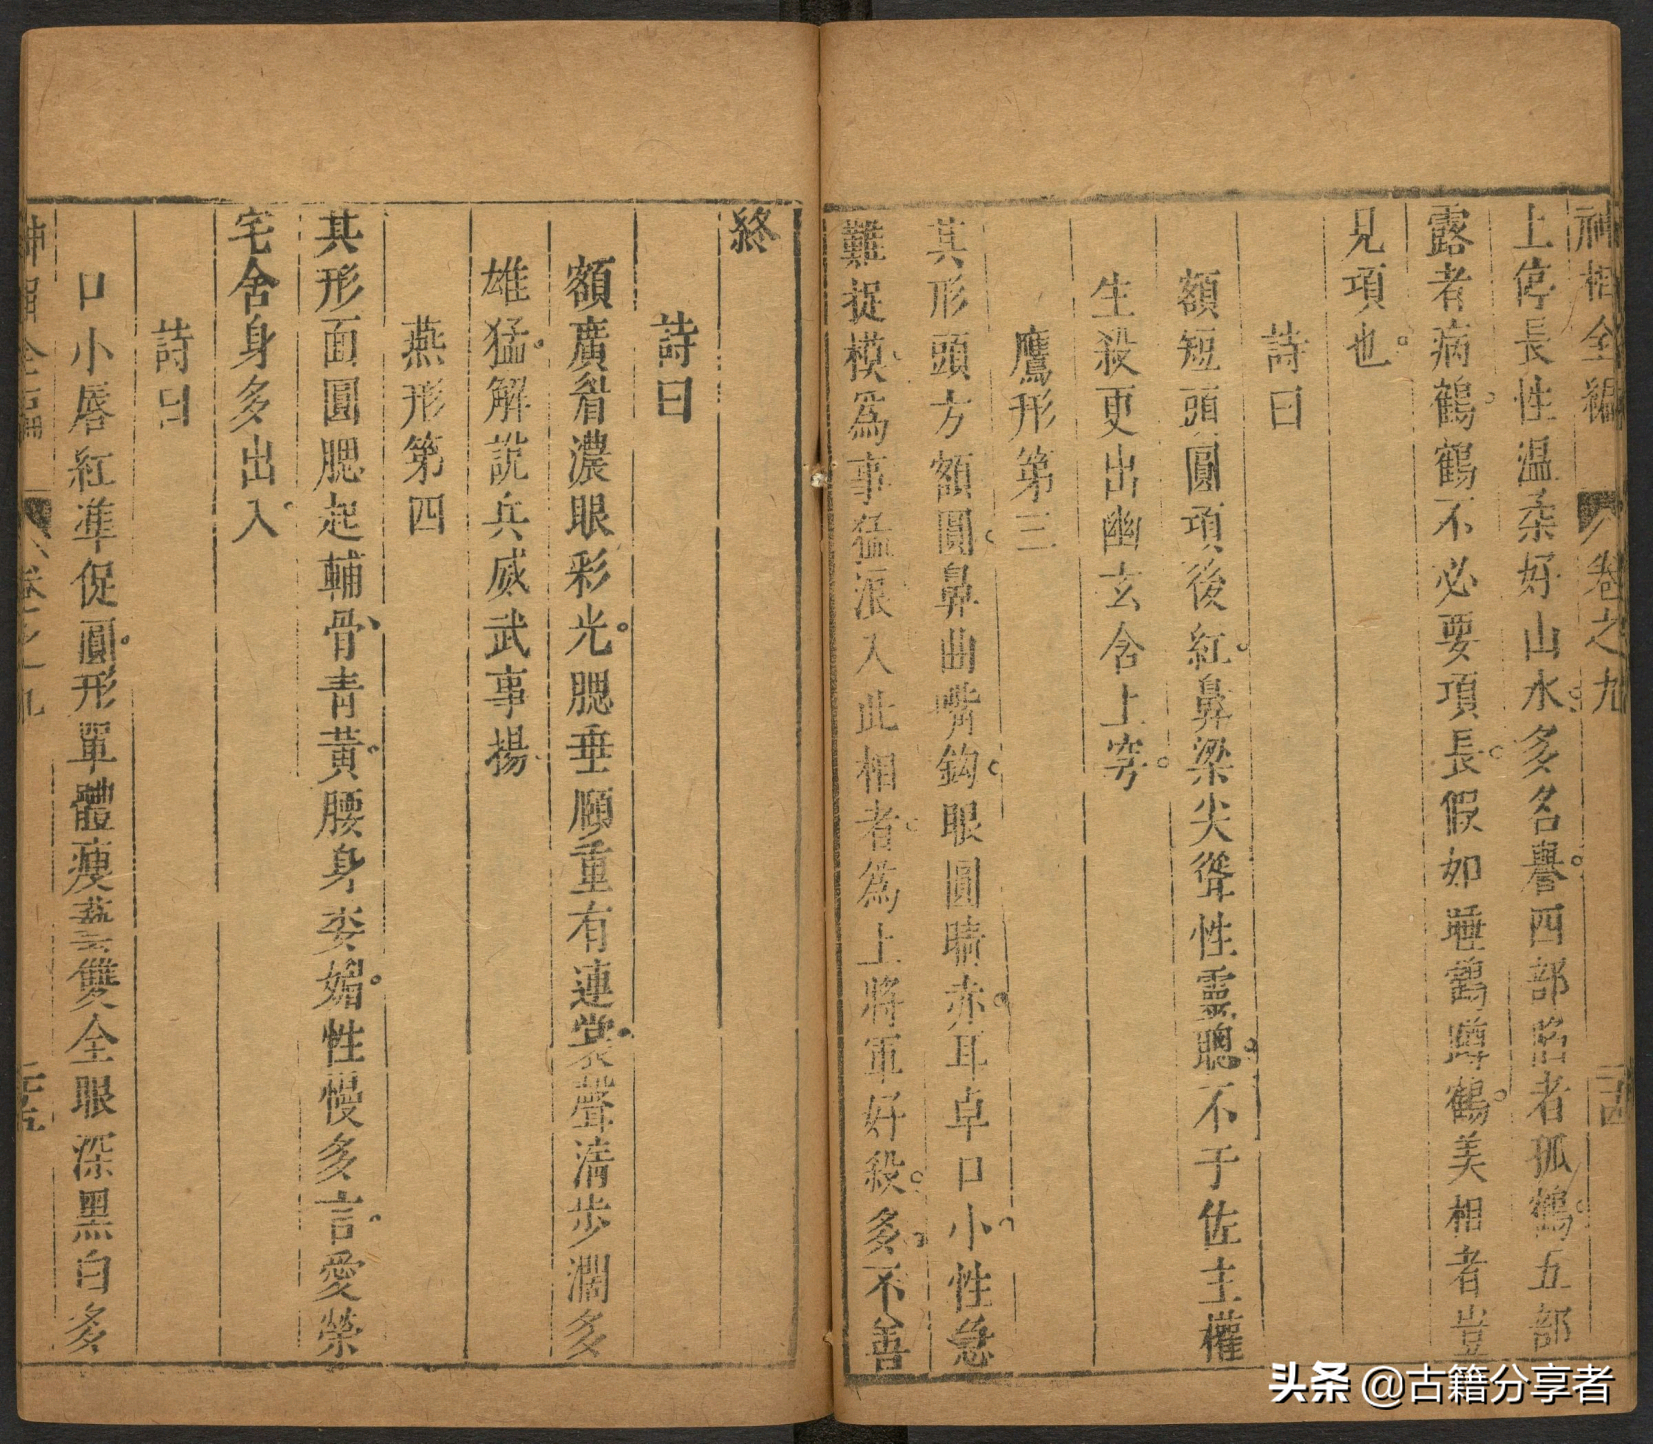 神相全編 卷之九
上停長性温柔好山水多名譽四部陷者孤鶴五部
露者病鶴鶴不必要項長假如睡鶴蹲鶴美相者豈
見項也
詩曰
額短頭圓項後紅鼻梁尖聳性靈聰不于佐主權
生殺更出幽玄含上穹
鷹形第三
其形頭方額圓鼻曲嘴鈎眼圓睛赤耳卓口小性急
難捉模為事猛浪入此相者為上將軍好殺多不善
終
詩曰
額廣眉濃眼彩光腮垂頤重有連裳聲清步濶多
雄猛解説兵威武事揚
燕形第四
其形面圓腮起輔骨青黃腰身委媚性慢多言愛榮
宅舍身多出入
詩曰
口小唇紅準促圓形單體瘦藝雙全眼深黑白多
卷之九
二十五
头条 @古籍分享者